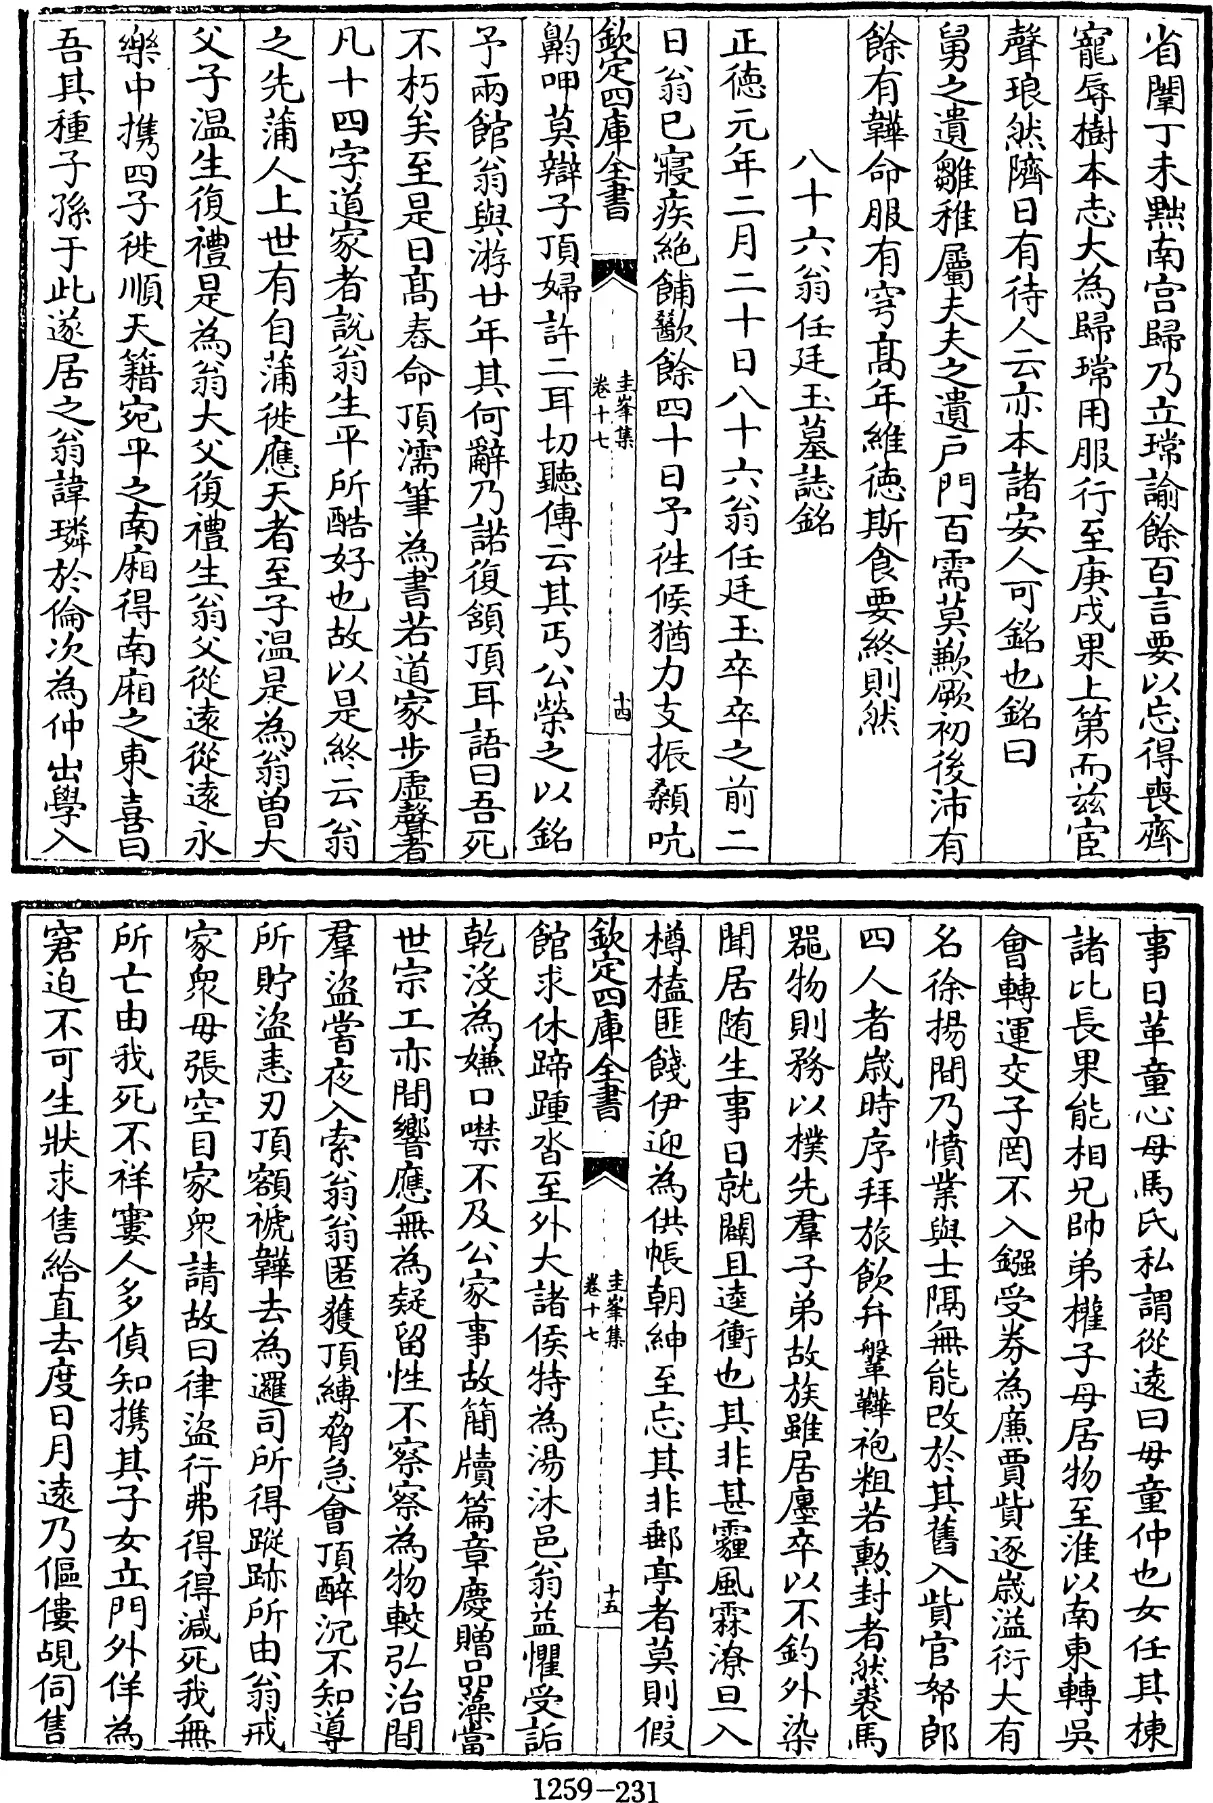 省闈丁未黜南宫歸乃立璫諭餘百言要以忘得喪齊
寵辱樹本志大為歸璫用服行至庚戌果上第而兹宦
聲琅然隮日有待人云亦本諸安人可銘也銘曰
舅之遺雛稚屬夫夫之遺戶門百需莫歉厥初後沛有
餘有韡命服有穹髙年維徳斯食要終則然
八十六翁任廷玉墓誌銘
正德元年二月二十日八十六翁任廷玉卒卒之前二
日翁已寢疾絶餔歠餘四十日予徃候猶力支振顙吭
欽定四庫全書
圭峯集
卷十七
十四
齁呷莫辯子頂婦許二耳切聽傳云其丐公榮之以銘
予兩館翁與游廿年其何辭乃諾復頷頂耳語曰吾死
不朽矣至是日髙舂命頂濡筆為書若道家步虛聲者
凡十四字道家者說翁生平所酷好也故以是終云翁
之先蒲人上世有自蒲徙應天者至子温是為翁曾大
父子温生復禮是為翁大父復禮生翁父從逺從逺永
樂中攜四子徙順天籍宛平之南廂得南廂之東喜曰
吾其種子孫于此遂居之翁諱璘於倫次為仲出學入
事日革童心母馬氏私謂從逺曰毋童仲也女任其棟
諸比長果能相兄帥弟權子母居物至淮以南東轉吳
會轉運交子罔不入鏹受劵為廉賈貲逐歲溢衍大有
名徐揚間乃憤業與士隔無能改於其舊入貲官帑郎
四人者歲時序拜旅飲弁鞶韡袍粗若勲封者然裘馬
噐物則務以樸先羣子弟故族雖居廛卒以不釣外染
聞居随生事日就闢且逵衝也其非甚霾風霖潦旦入
樽榼匪餞伊迎為供帳朝紳至忘其非郵亭者莫則假
欽定四庫全書
圭峯集
卷十七
十五
館求休蹄踵沓至外大諸侯特為湯沐邑翁益懼受詬
乾沒為嫌口噤不及公家事故簡牘篇章慶贈品藻當
世宗工亦間響應無為疑留性不察察為物較弘治間
羣盜嘗夜入索翁翁匿獲頂縛脅急會頂醉沉不知導
所貯盜恚刃頂額褫韡去為邏司所得蹤跡所由翁戒
家衆毋張空目家衆請故曰律盜行弗得得減死我無
所亡由我死不祥窶人多偵知攜其子女立門外佯為
窘迫不可生狀求售給直去度日月逺乃傴僂覘伺售
1259-231